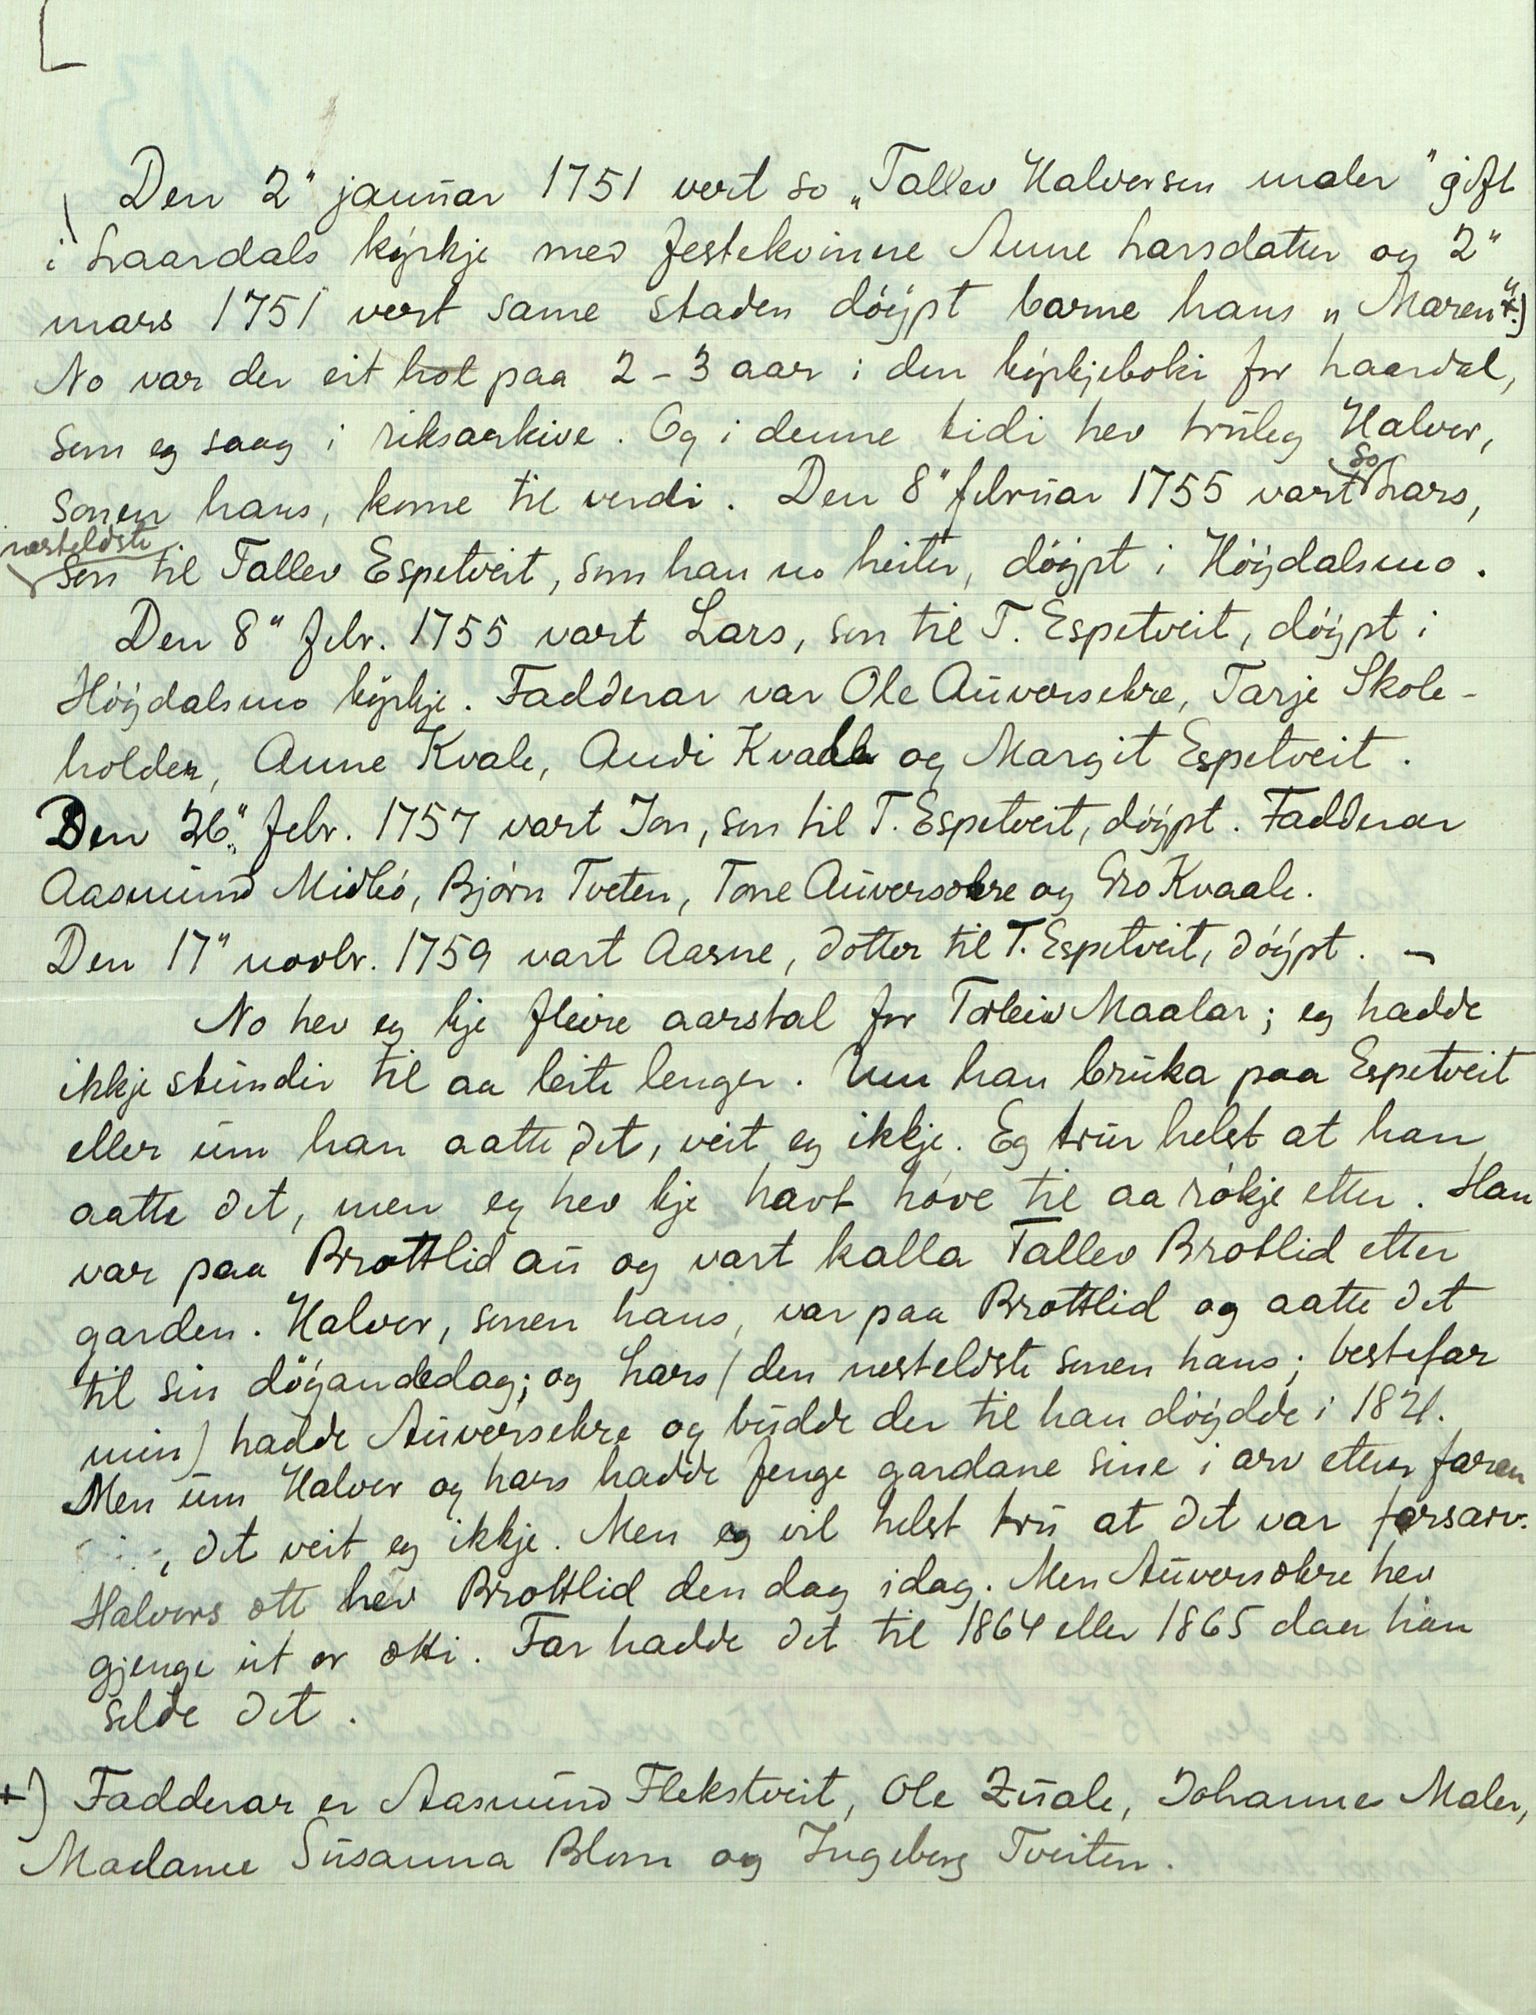 Den 2" januar 1751 vert so „Tallev Halversen maler" gift
i Laardals kyrkje med festekvinne Anne Larsdatter og 2"
mars 1751 vert same staden döypt barne hans „Maren" +.)
No var der eit hol paa 2-3 aar i den kyrkjeboki for Laardal,
som eg saag i riksarkive. Og i denne tidi hev truleg Halvor,
sonen hans, kome til verdi. Den 8" februar 1755 vart so Lars,
nesteldste
son til Tallev Espetveit, som han no heiter, döypt i Höydalsmo.
Den 8" febr. 1755 vart Lars, son til T. Espetveit, döypt i
Höydalsmo kyrkje. Fadderar var Ole Auversekre, Tarje Skole-
holder, Anne Kvale, Audi Kvaale og Margit Espetveit.
Den 26" febr. 1757 vart Jon, son til T. Espetveit, döypt. Fadderar
Aasmund Midbö, Björn Tveten, Tone Auversekre og Gro Kvaale.
Den 17" novbr. 1759 vart Aasne, dotter til T. Espetveit, döypt. –
No hev eg kje fleire aarstal for Torleiv Maalar; eg hadde
ikkje stunder til aa leite lenger. Um han bruka paa Espetveit
eller um han aatte det, veit eg ikkje. Eg trur helst at han
aatte det, men eg hev kje havt höve til aa rökje etter. Han
var paa Brottlid au og vart kalla Tallev Brotlid etter
garden. Halvor, sonen hans, var paa Brottlid og aatte det
til sin döyandedag; og Lars (den nesteldste sonen hans; bestefar
min) hadde Auversekre og budde der til han döydde i 1821.
Men um Halvor og Lars hadde fenge gardane sine i arv etter faren
, det veit eg ikkje. Men eg vil helst tru at det var farsarv.
Halvors ætt hev Brottlid den dag idag. Men Auversekre hev
gjenge ut or ætti. Far hadde det til 1864 eller 1865 daa han
selde det.
+) Fadderar er Aasmund Flekstveit, Ole Zuale, Johannes Maler,
Madame Susanna Blom og Ingeborg Tveiten.